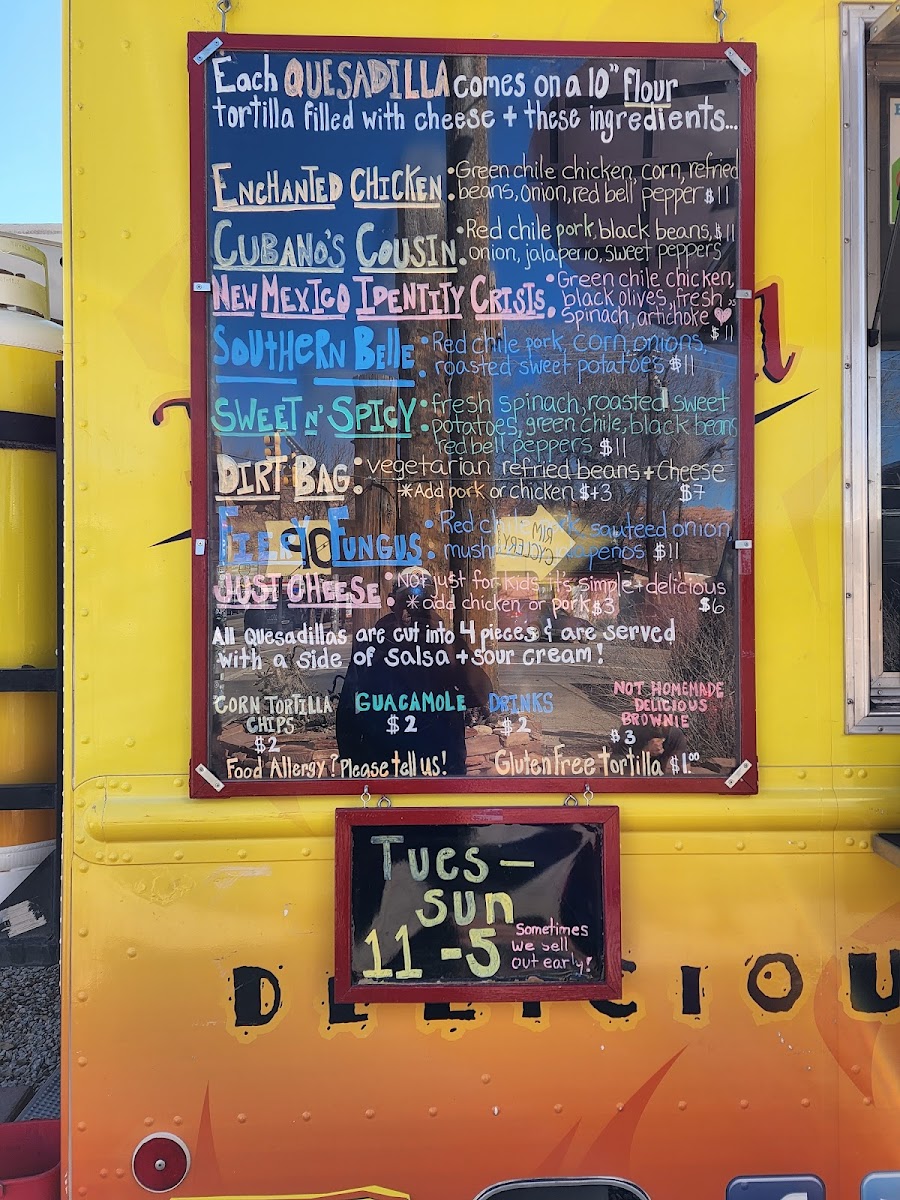 Each QUESADILLA comes on a 10" flour
tortilla filled with cheese + these ingredients...
ENCHANTED CHICKEN: Green chile chicken, corn, refried
beans, onion, red bell pepper $11
CUBANO'S COUSIN: Red chile pork black beans, $11
onion, jalapeño, sweet peppers
NEW MEXICO IDENTITY CRISIS: Green chile chicken,
black olives, fresh
spinach, artichoke
$11
SOUTHERN BELLE: Red chile pork, corn, onions,
roasted sweet potatoes $11
SWEET N' SPICY: fresh spinach, roasted sweet
potatoes, green chile, black beans
red bell peppers $11
DIRT BAG: vegetarian refried beans + cheese
*Add pork or chicken $+3 $7
FUNGUS: Red sauteed onion
$11
JUST CHEESE: Not just for kids, it's simple + delicious
*add chicken or pork $3 $6
All Quesadillas are cut into 4 pieces & are served
with a side of salsa + sour cream!
CORN TORTILLA
CHIPS
$2
GUACAMOLE
$2
DRINKS
$2
NOT HOMEMADE
DELICIOUS
BROWNIE
$3
Food Allergy? Please tell us!
Gluten Free tortilla $1.00
Tues -
Sun
11 - 5
Sometimes
we sell
out early!
DELICIOU